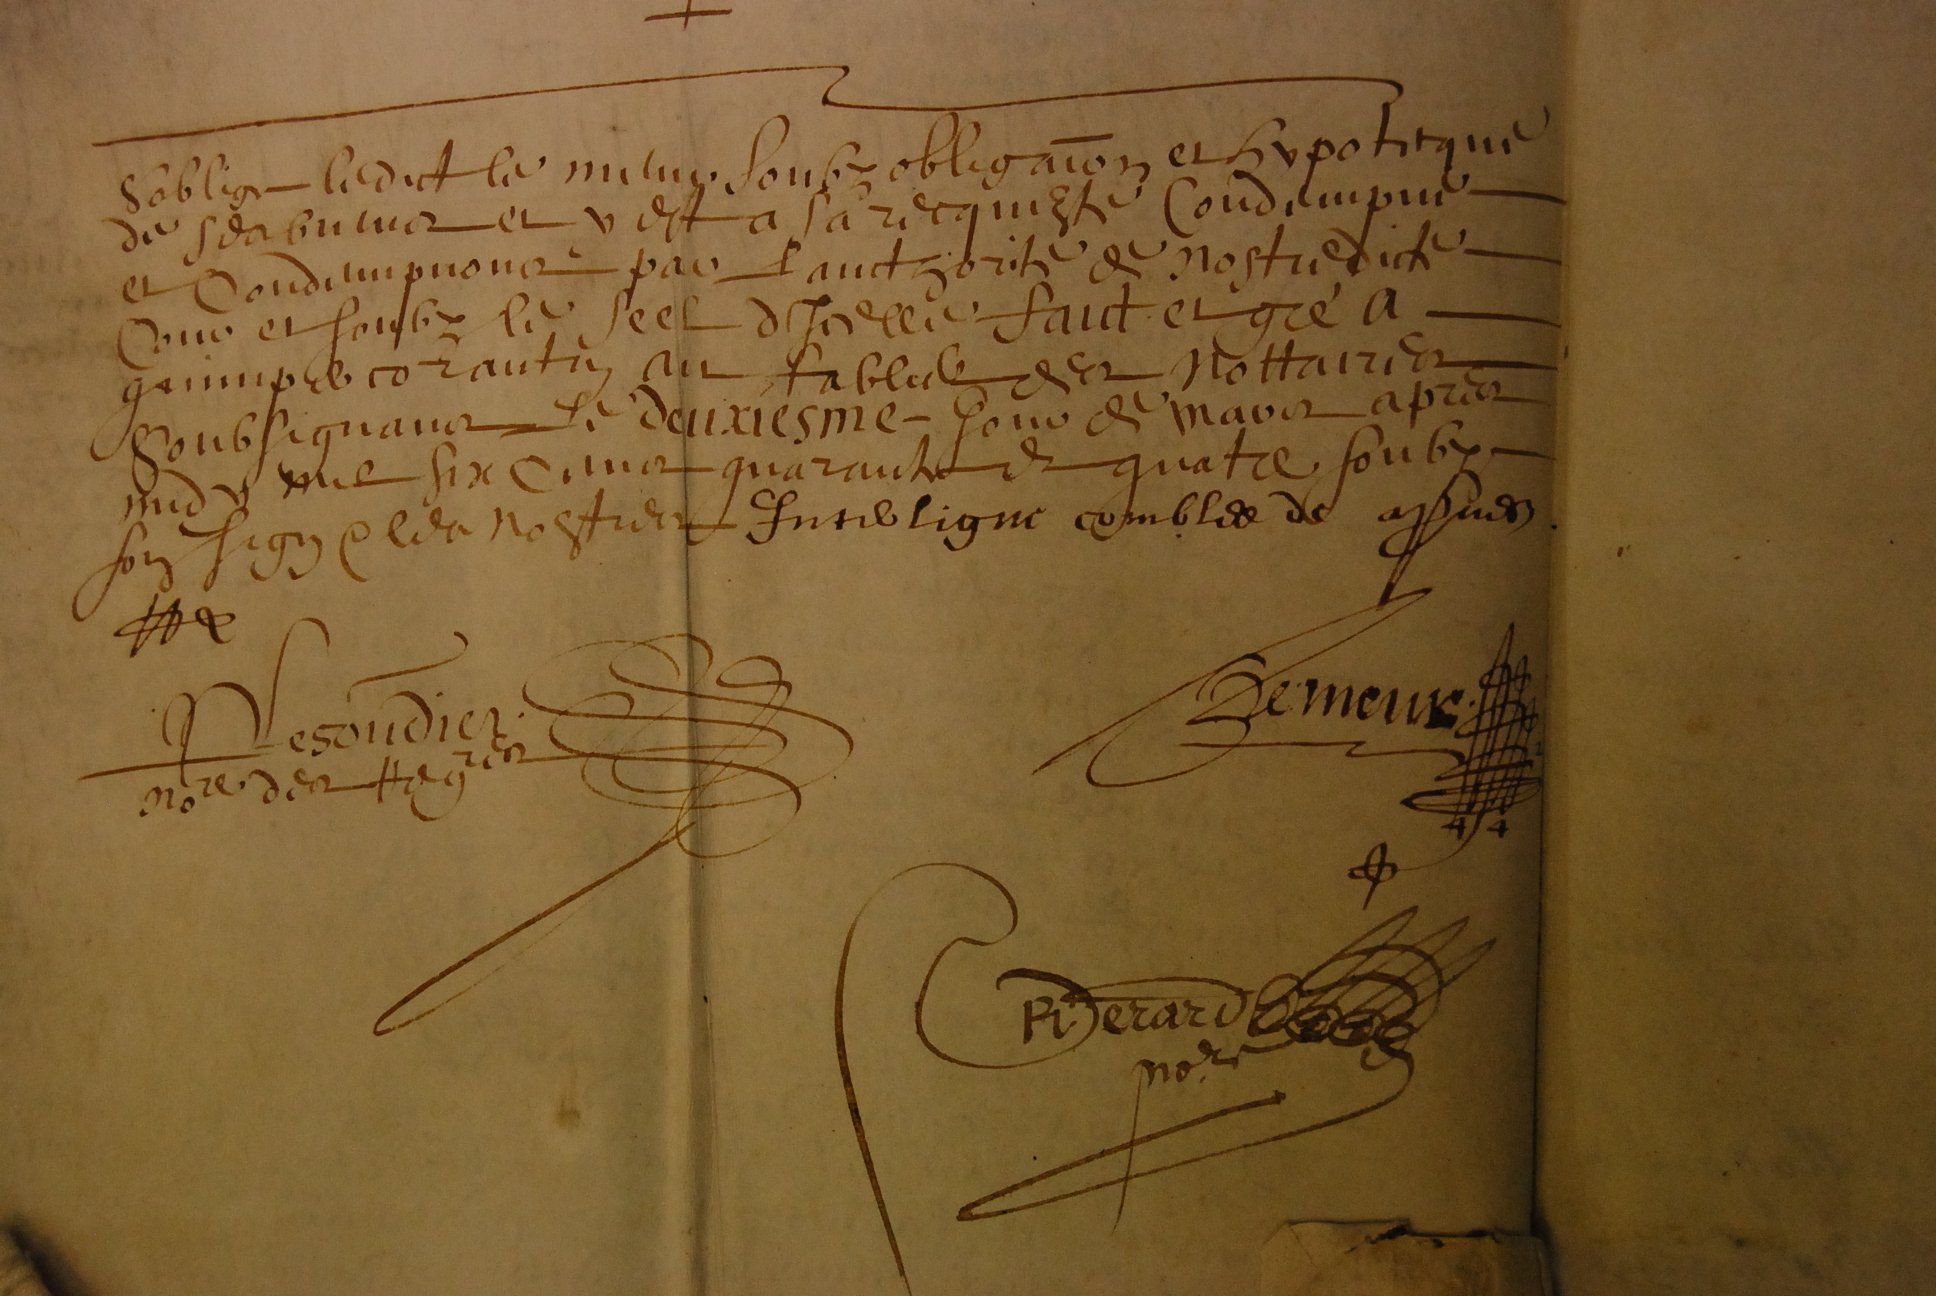 s'oblige ledict le meur soubz obligaon et hypotecque
de ses biens et y est a sa recqueste Condempné
et Condempnons par l'aucthorité de nostredicte
Cour et soubz le seel d'Icelle faict et gré a
quimper corantin au tablier des Nottaires
Soubsignans le deuxiesme Jour de mars apres
midy mil six Cents quarante et quatre soubz
son sign et les nostres Interligne de
Lemeur
notre des
Derard
nore